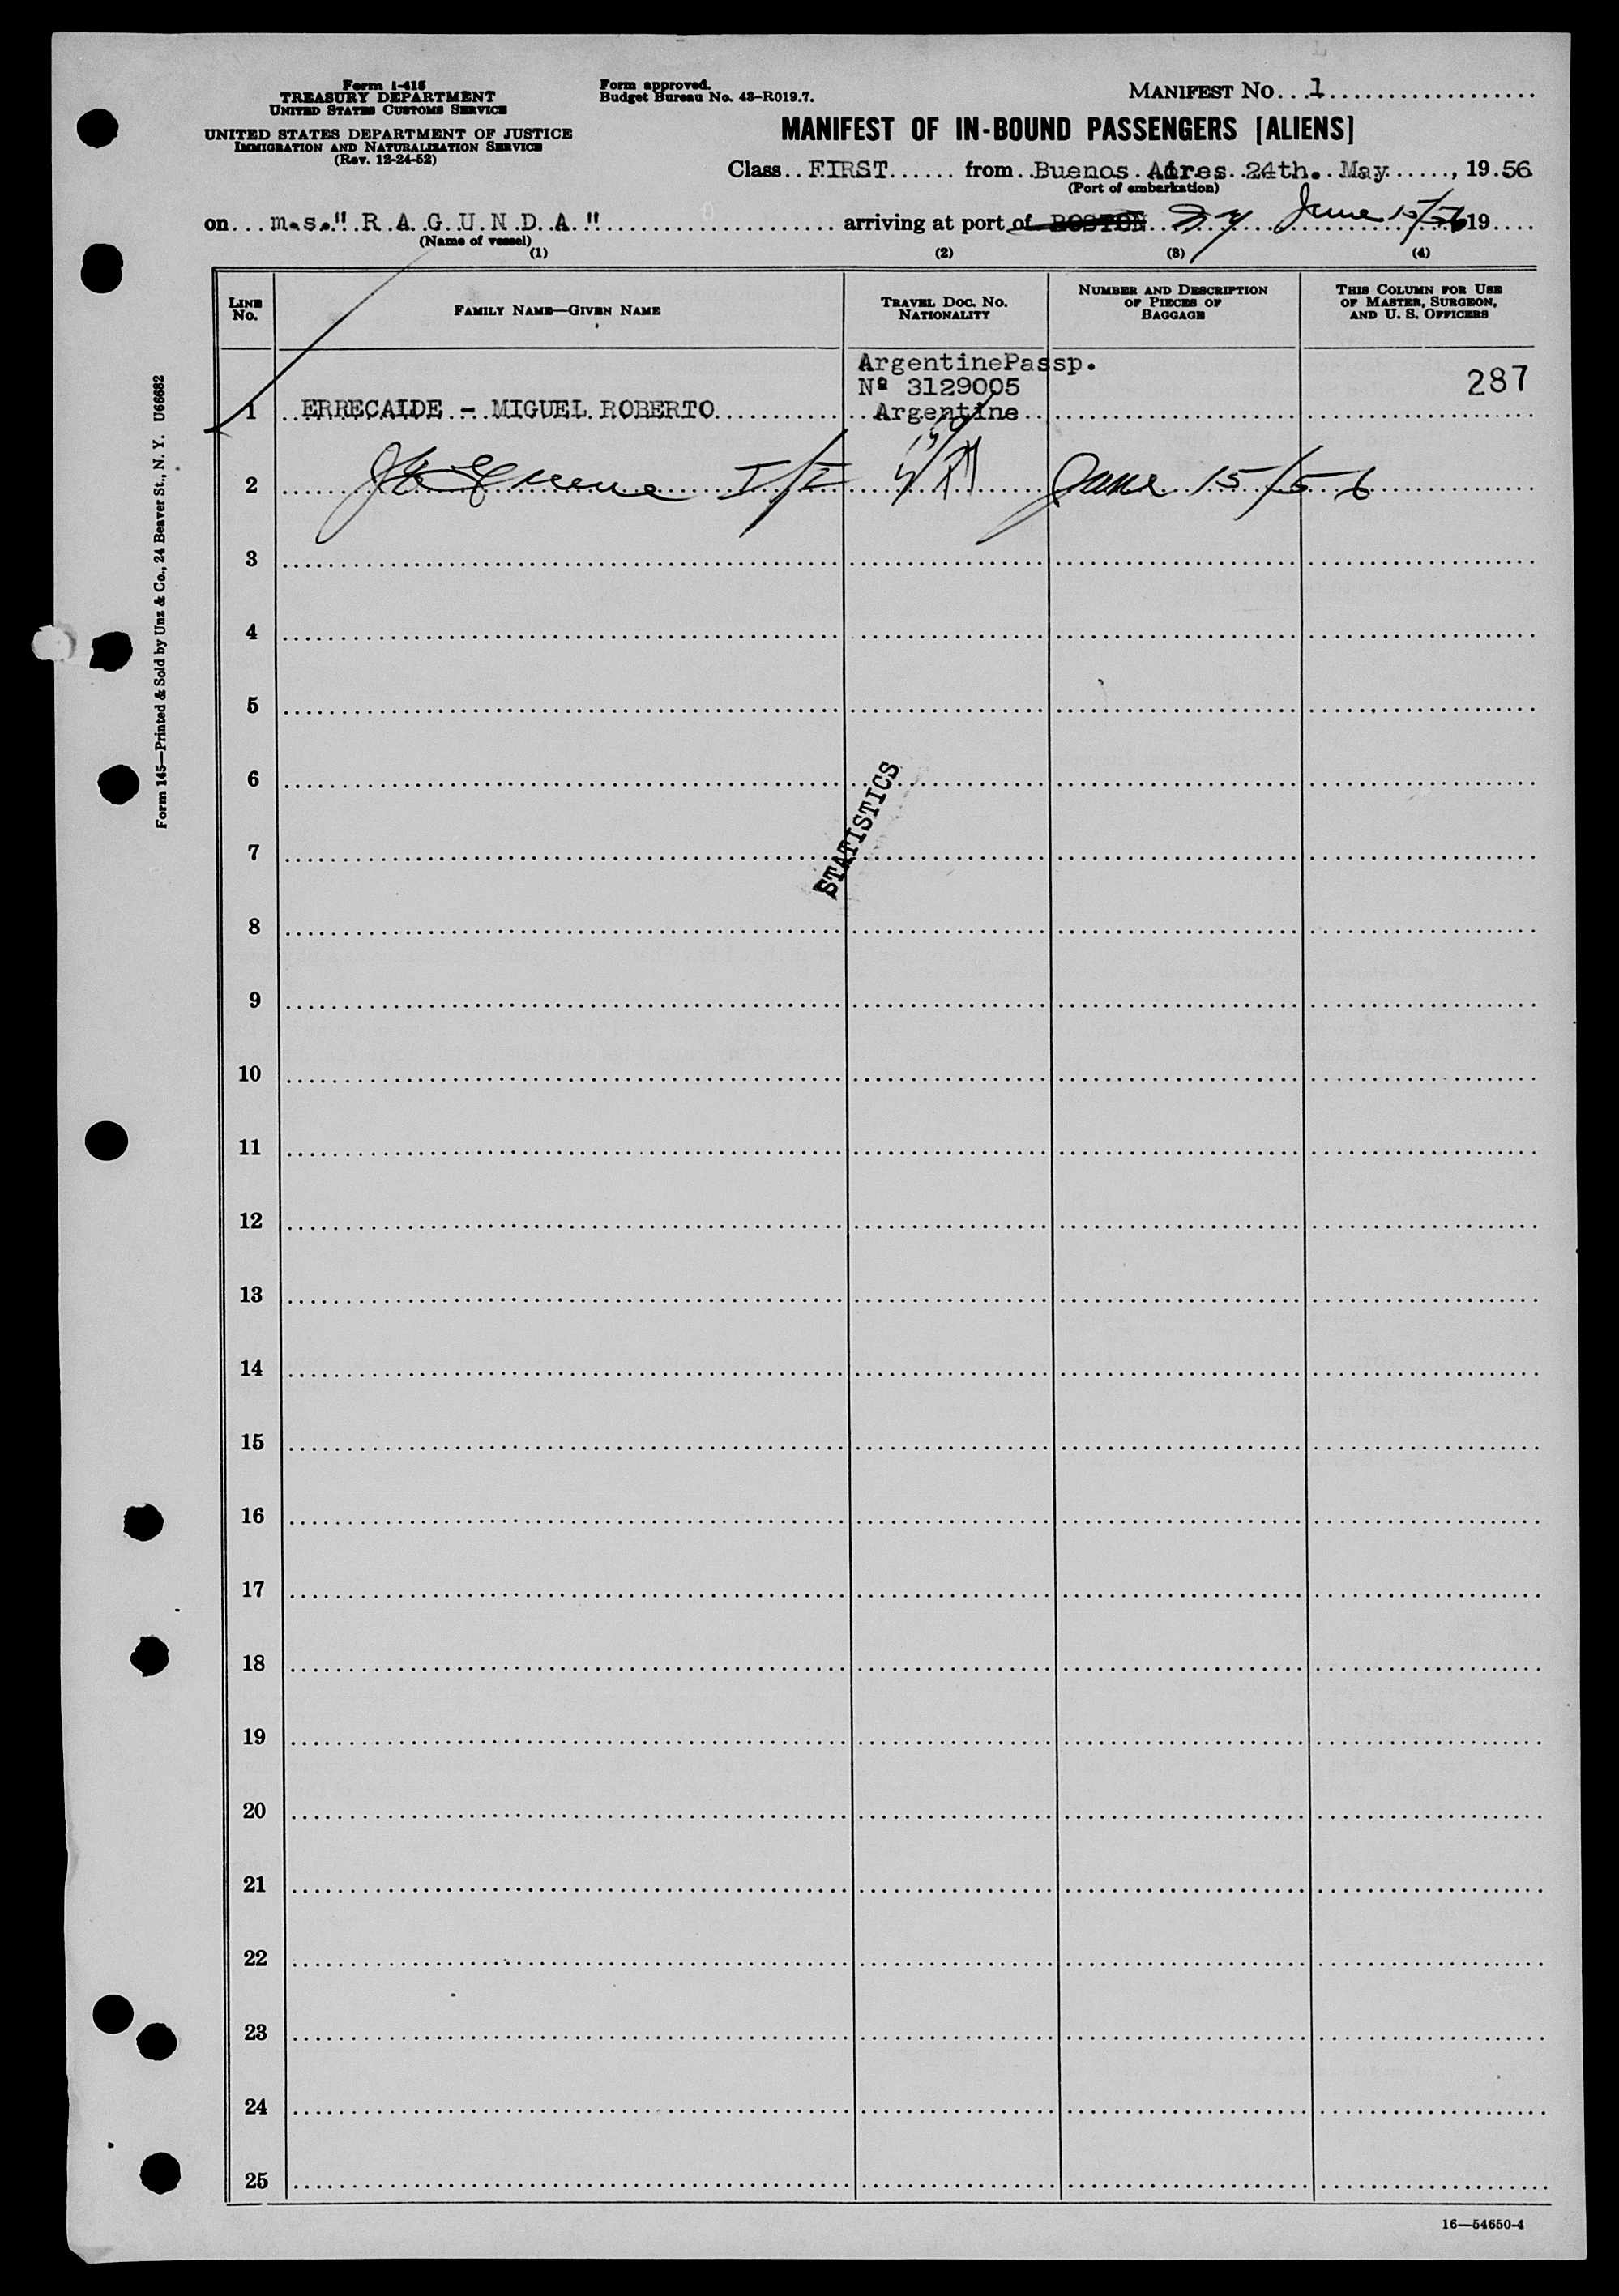 Form I-415
TREASURY DEPARTMENT
UNITED STATES CUSTOMS SERVICE
UNITED STATES DEPARTMENT OF JUSTICE
IMMIGRATION AND NATURALIZATION SERVICE
(Rev. 12-24-52)
Form approved.
Budget Bureau No. 43-R019.7.
MANIFEST NO. 1
MANIFEST OF IN-BOUND PASSENGERS [ALIENS]
Class FIRST from Buenos Aires 24th. May, 1956
(Port of embarkation)
on m.s." R A G U N D A " arriving at port of BOSTON NY June 15/56 19
(Name of vessel)
(1) (2) (3) (4)
LINE NO.
FAMILY NAME—GIVEN NAME
TRAVEL DOC. NO. NATIONALITY
NUMBER AND DESCRIPTION OF PIECES OF BAGGAGE
THIS COLUMN FOR USE OF MASTER, SURGEON, AND U. S. OFFICERS
ArgentinePassp.
Nº 3129005 287
1 ERRECALDE - MIGUEL ROBERTO Argentine
2 June 15/56
3
4
5
6
STATISTICS
7
8
9
10
11
12
13
14
15
16
17
18
19
20
21
22
23
24
25
16—54650-4
Form 145—Printed & Sold by Unz & Co., 24 Beaver St., N. Y. U66682